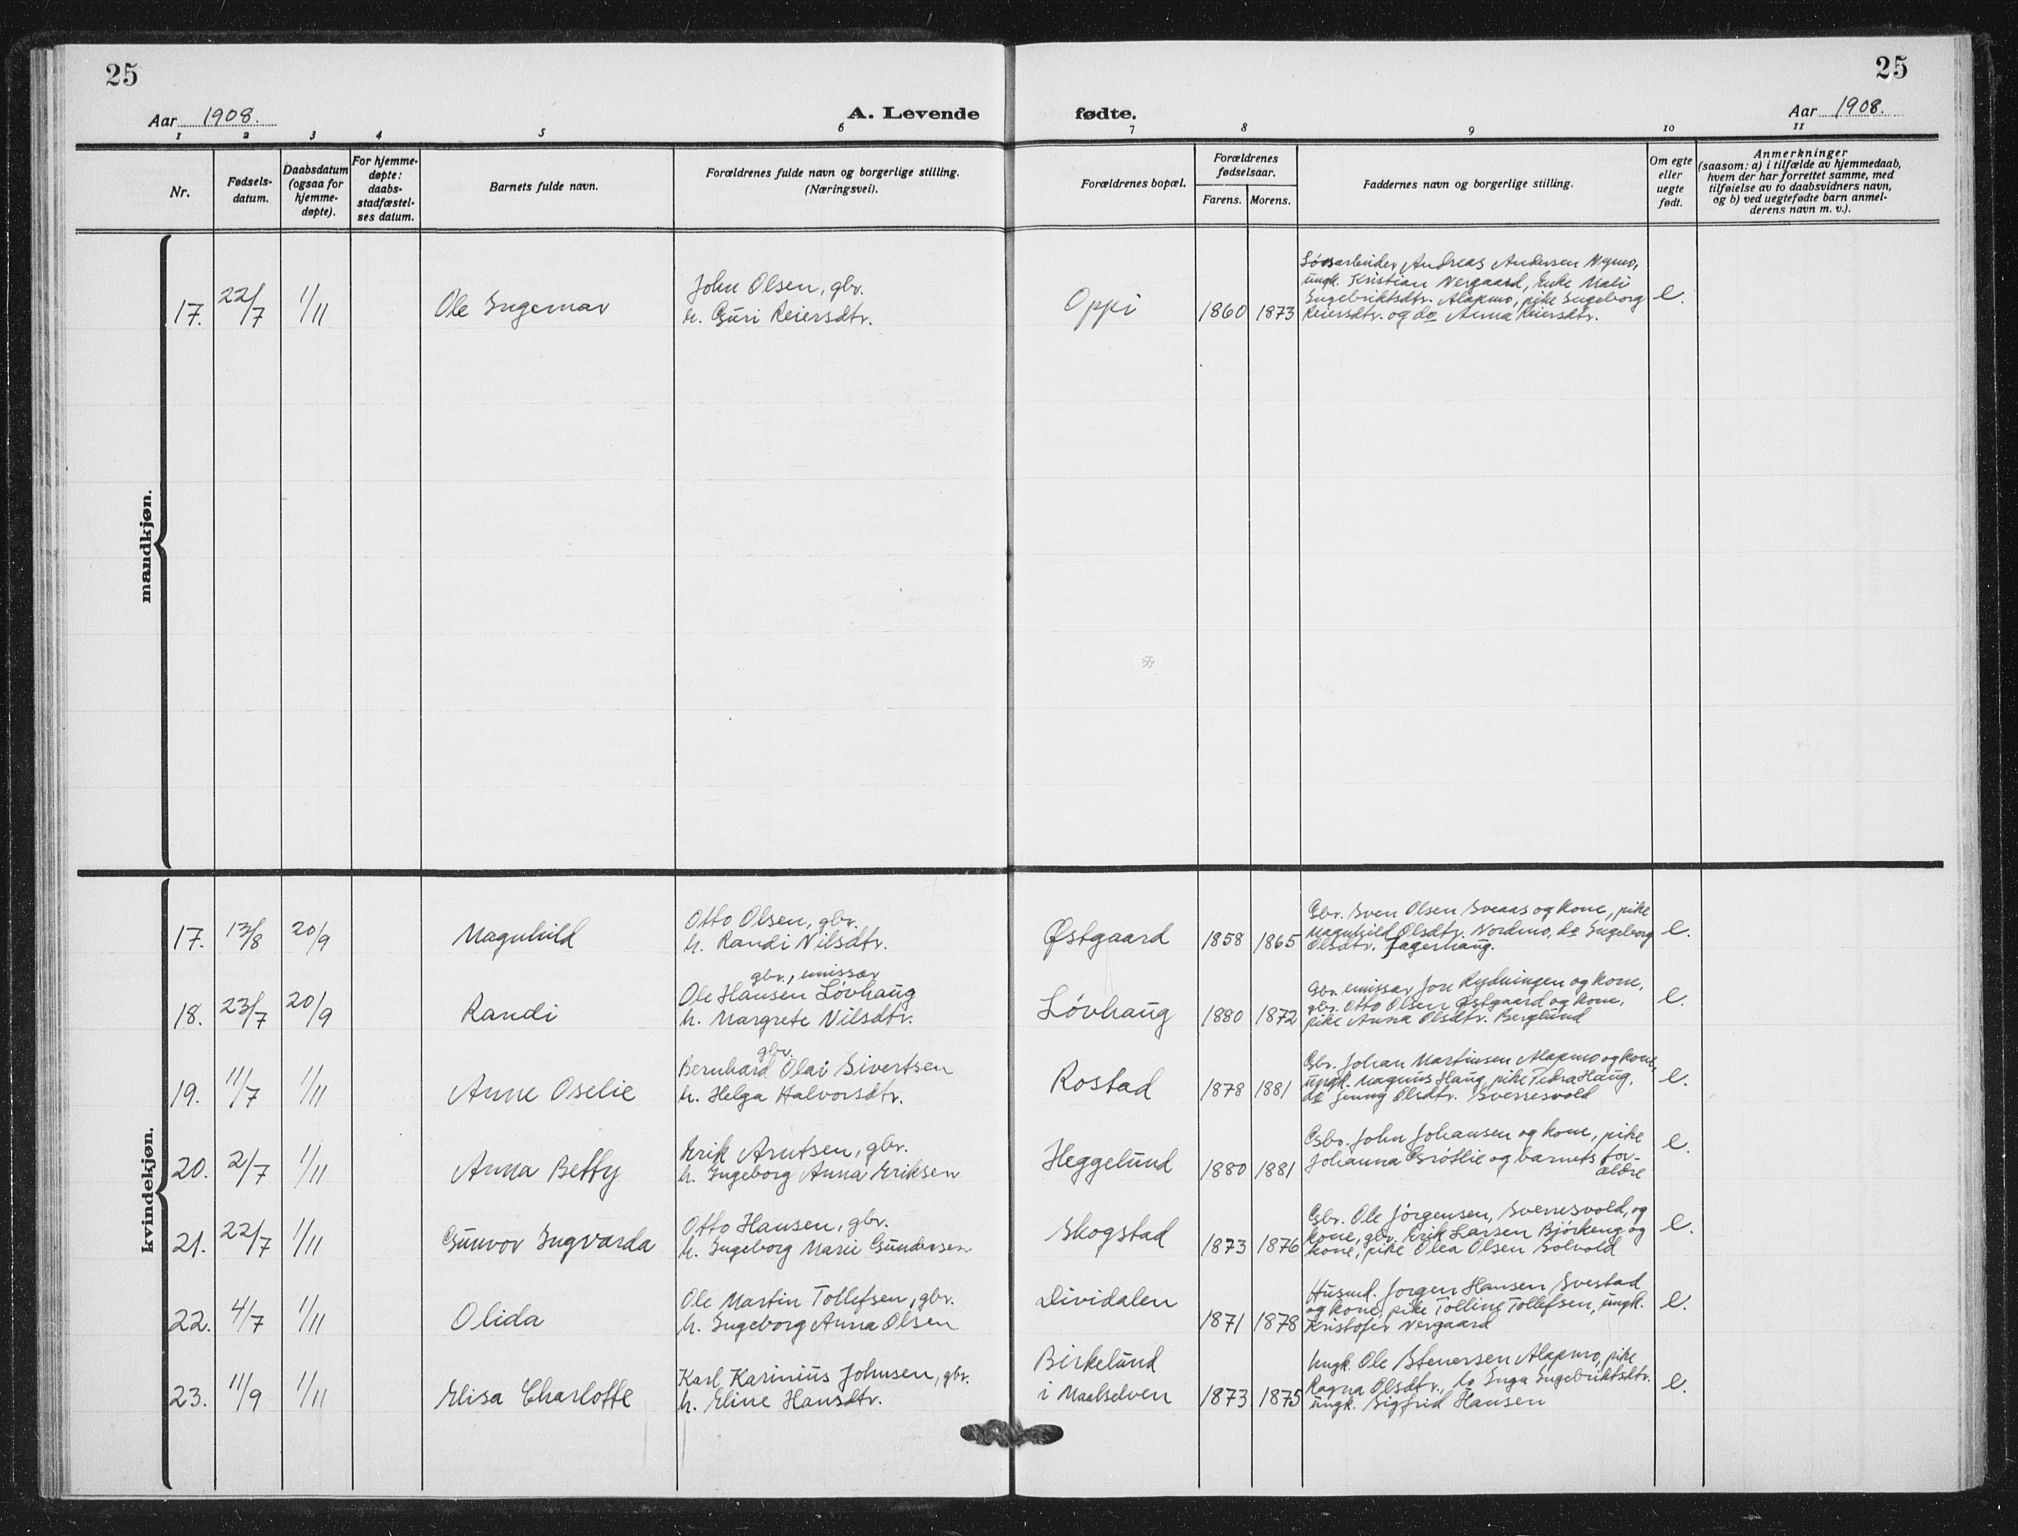 25
25
Aar 1908.
A. Levende fødte.
Aar 1908.
1 2 3 4 5 6 7 8 9 10 11
Nr.
Fødsels-
datum.
Daabsdatum
(ogsaa for
hjemme-
døpte).
For hjemme-
døpte:
daabs-
stadfæstel-
ses datum.
Barnets fulde navn.
Forældrenes fulde navn og borgerlige stilling.
(Næringsvei).
Forældrenes bopæl.
Forældrenes
fødselsaar.
Farens. Morens.
Faddernes navn og borgerlige stilling.
Om egte
eller
uegte
født.
Anmerkninger
(saasom: a) i tilfælde av hjemmedaab,
hvem der har forrettet samme, med
tilføielse av to daabsvidners navn,
og b) ved uegtefødte barn anmel-
derens navn m. v.).
mandkjøn.
17. 22/7 1/11 Ole Ingemar
John Olsen, gbr.
h. Guri Reiersdtr.
Oppi 1860 1873
Andreas Andersen Nymo,
ungk. Kristian Vergaard, Enke Mali
Engebriktsdtr. Alapmo, pike Ingeborg
Reiersdtr. og do Anna Reiersdtr.
e.
kvindekjøn.
17. 13/8 20/9 Magnhild
Otto Olsen, gbr.
h. Randi Nilsdtr.
Østgaard 1858 1865
Gbr. Sven Olsen Sveaas og kone, pike
Magnhild Olsdtr. Nordmo, do Ingeborg
Olsdtr. Fagerhaug.
e.
18. 23/7 20/9 Randi
gbr., emissær
Ole Hansen Løvhaug
h. Margrete Nilsdtr.
Løvhaug 1880 1872
Gbr. emissær Jon Rydningen og kone,
gbr. Otto Olsen Østgaard og kone,
pike Anna Olsdtr. Berglund
e.
19. 11/7 1/11 Anne Oselie
gbr.
Bernhard Olai Sivertsen
h. Helga Halvorsdtr.
Rostad 1878 1881
Gbr. Johan Martinsen Alapmo og kone,
ungk. Magnus Haug, pike Petra Haug,
do Jenny Olsdtr. Sverresvold
e.
20. 2/7 1/11 Anna Betty
Erik Arntsen, gbr.
h. Ingeborg Anna Eriksen
Heggelund 1880 1881
Gbr. John Johansen og kone, pike
Johanna Grøtlie og barnets for-
ældre
e.
21. 22/7 1/11 Gunvor Ingvarda
Otto Hansen, gbr.
h. Ingeborg Marie Gundersen
Skogstad 1873 1876
Gbr. Ole Jørgensen, Sverresvold, og
kone, gbr. Erik Larsen Bjørkeng og
kone, pike Olea Olsen Solvold
e.
22. 4/7 1/11 Olida
Ole Martin Tollefsen, gbr.
h. Ingeborg Anna Olsen
Dividalen 1871 1878
Husm. Jørgen Hansen Svestad
og kone, pike Tolline Tollefsen, ungk.
Kristofer Vergaard
e.
23. 11/9 1/11 Elisa Charlotte
Karl Karinius Johnsen, gbr.
h. Eline Hansdtr.
Birkelund
i Maalselven 1873 1875
Ungk. Ole Stenersen Alapmo, pike
Ragna Olsdtr., do Inga Ingebriktsdtr.
ungk. Sigfrid Hansen
e.